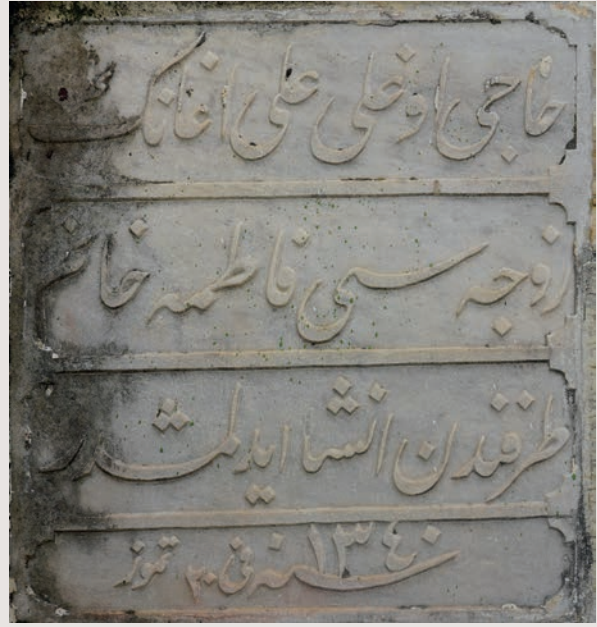 حاجی اوغلی علی اغانك
زوجه سی فاطمه خانم
طرفندن انشا ایدلمشدر
سنه ١٣٤٠ فی ٢٠ تموز